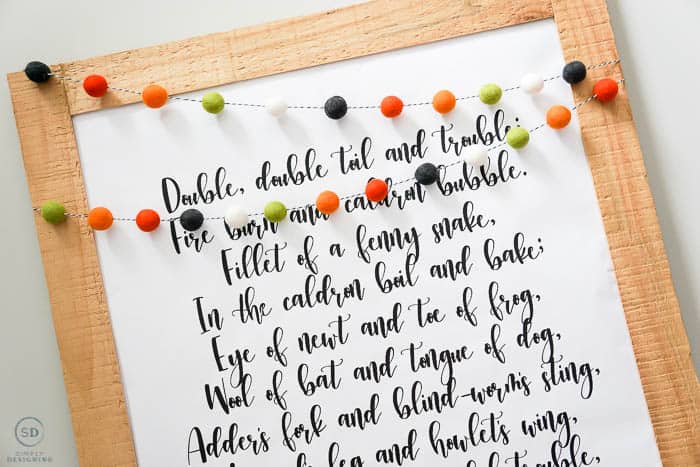 Double, double toil and trouble;
Fire burn and caldron bubble.
Fillet of a fenny snake,
In the caldron boil and bake;
Eye of newt and toe of frog,
Wool of bat and tongue of dog,
Adder's fork and blind-worm's sting,
leg and howlet's wing,
of trouble,
SD
SIMPLY
DESIGNING